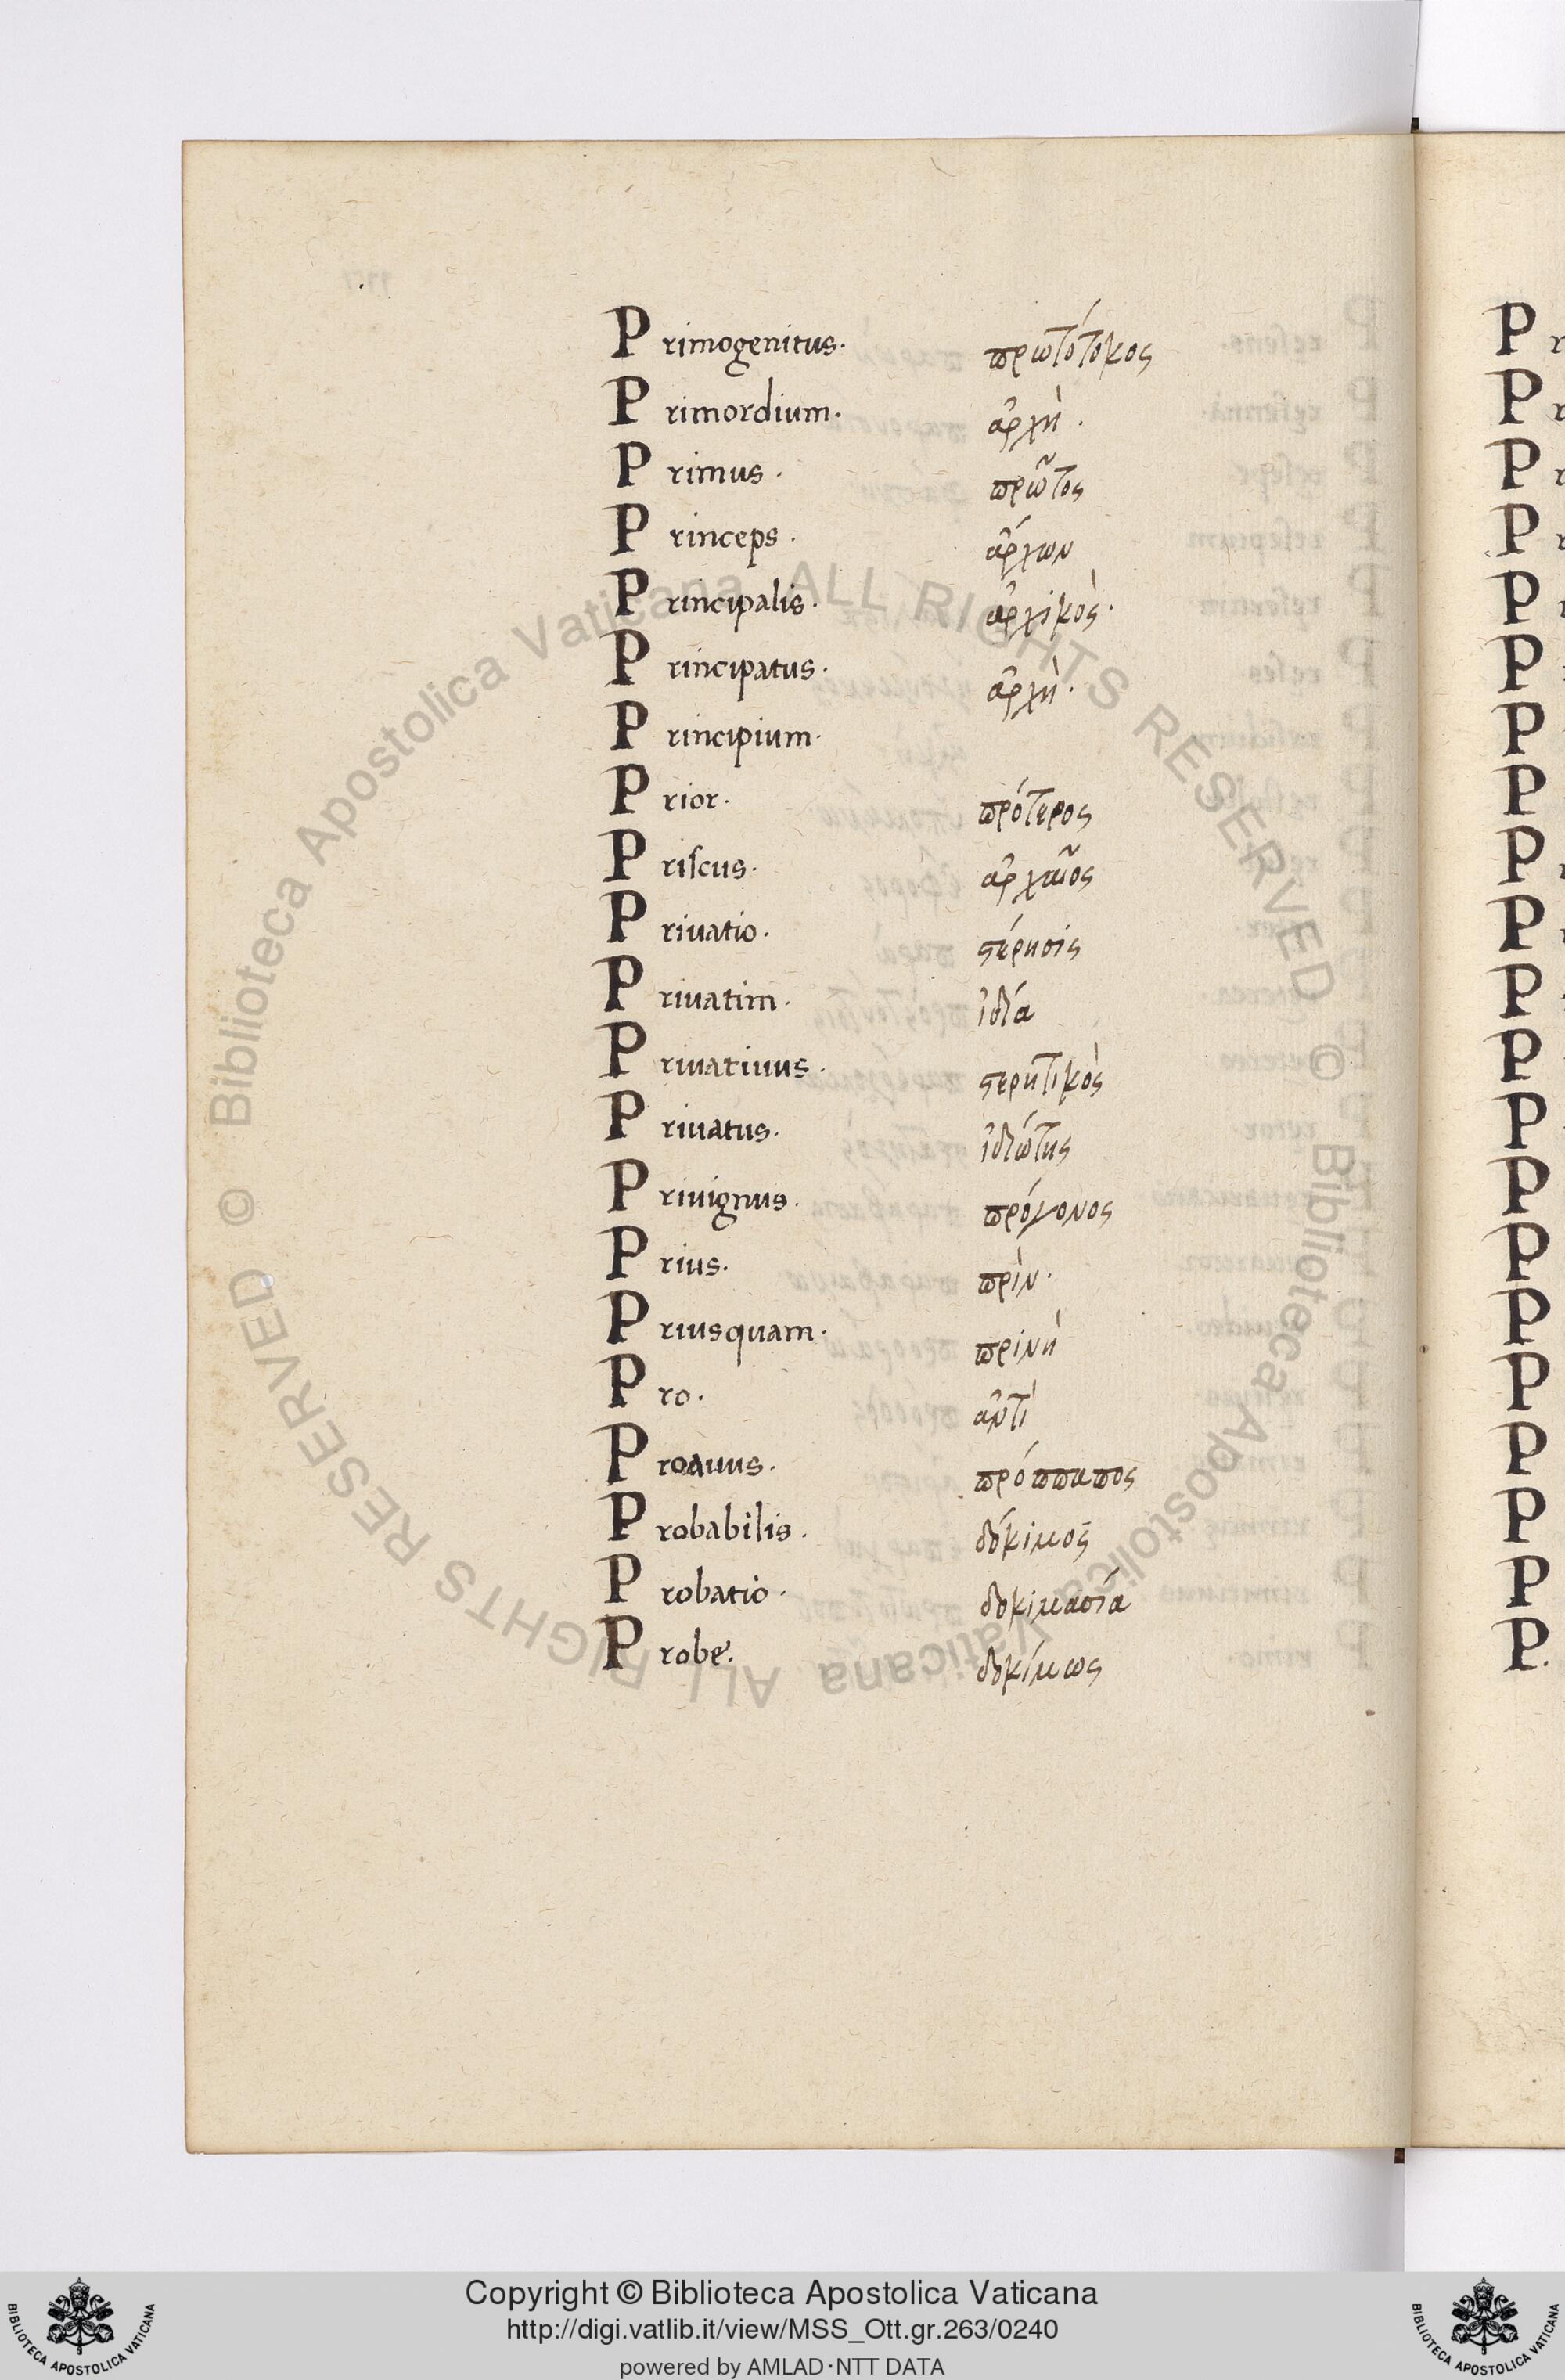 Primogenitus· πρωτότοκος
Primordium· ἀρχὴ ·
Primus · πρῶτος
Princeps · ἄρχων
Principalis· ἀρχικὸς·
Principatus· ἀρχὴ·
Principium·
Prior· πρότερος
Priscus· ἀρχαῖος
Priuatio· στέρησις
Priuatim· ἰδία
Priuatiuus· στερητικὸς
Priuatus· ἰδιώτης
Priuignus· πρόγονος
Prius· πρὶν·
Priusquam· πρινὴ
Pro· ἀντὶ
Proauus· πρόππαπος
Probabilis· δόκιμος
Probatio· δοκιμασία
Probe· δοκίμως
Biblioteca Apostolica Vaticana ALL RIGHTS RESERVED ©
Biblioteca Apostolica Vaticana ALL RIGHTS RESERVED ©
Copyright © Biblioteca Apostolica Vaticana
http://digi.vatlib.it/view/MSS_Ott.gr.263/0240
powered by AMLAD·NTT DATA
BIBLIOTECA APOSTOLICA VATICANA
BIBLIOTECA APOSTOLICA VATICANA